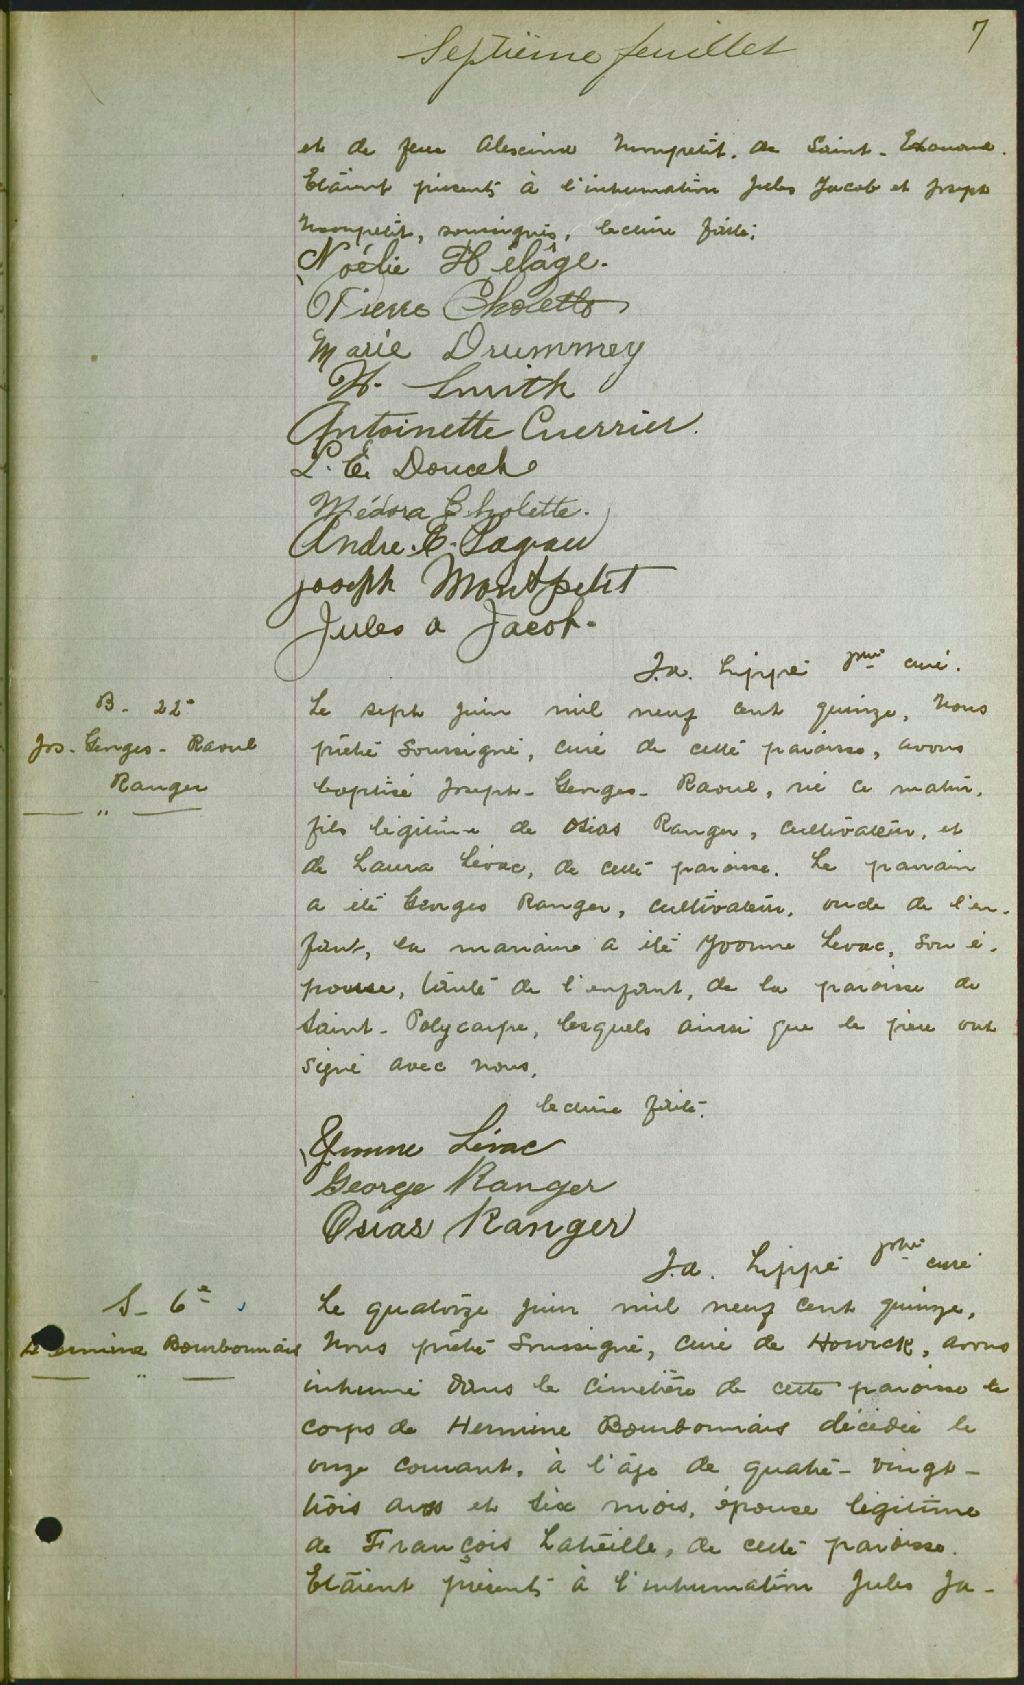 7
Septième feuillet
et de feue Alexina Montpetit, de Saint-Edouard.
Etaient présents à l'inhumation Jules Jacob et Joseph
Montpetit, soussignés, lecture faite.
Noélie Hélâge.
Pierre Cholette
Marie Drummey
H. Smith
Antoinette Cuerrier.
L. E. Doucet
Médora Cholette.
Andre. E.
Joseph Montpetit
Jules A Jacob.
J.A. Lippé ptre curé.
B - 22e
Jos-Georges-Raoul
Ranger
— " —
Le sept juin mil neuf cent quinze, Nous
prêtre soussigné, curé de cette paroisse, avons
baptisé Joseph-Georges-Raoul, né ce matin,
fils légitime de Osias Ranger, cultivateur, et
de Laura Lévac, de cette paroisse. Le parrain
a été Georges Ranger, cultivateur, oncle de l'en-
fant, la marraine a été Yvonne Levac, son é-
pouse, tante de l'enfant, de la paroisse de
Saint-Polycarpe, lesquels ainsi que le père ont
signé avec nous,
lecture faite.
Yvonne Lévac
George Ranger
Osias Ranger
J.A. Lippé ptre curé
S - 6e
Hermine Bourbonnais
— " —
Le quatorze juin mil neuf cent quinze,
Nous prêtre soussigné, curé de Howick, avons
inhumé dans le cimetière de cette paroisse le
corps de Hermine Bourbonnais décédée le
onze courant, à l'âge de quatre-vingt-
trois ans et six mois, épouse légitime
de François Latreille, de cette paroisse.
Etaient présents à l'inhumation Jules Ja-